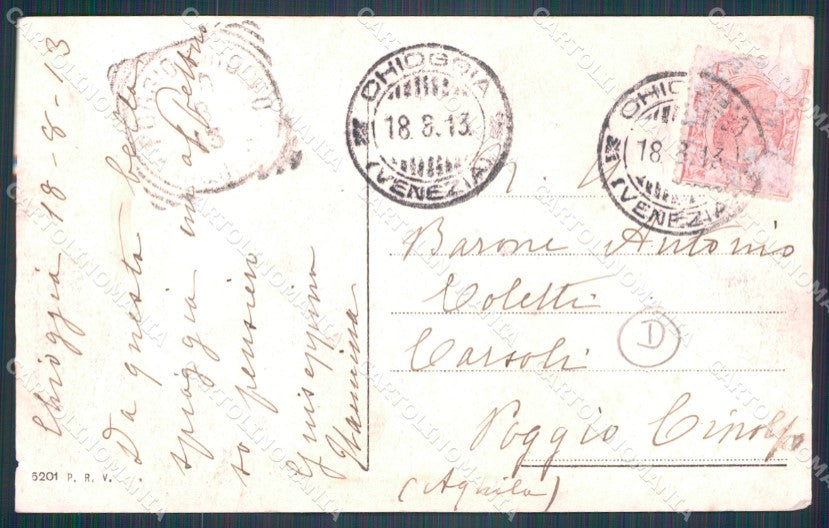 Chioggia 18-8-13
Da questa bella
spiaggia un affettuo
so pensiero
Giuseppina
CHIOGGIA
18.8.13
(VENEZIA)
CHIOGGIA
18.8.13
(VENEZIA)
Barone Antonio
Coletti
Carsoli
Poggio Cinolfo
(Aquila)
1
5201 P. R. V.
CARTOLINOMANIA